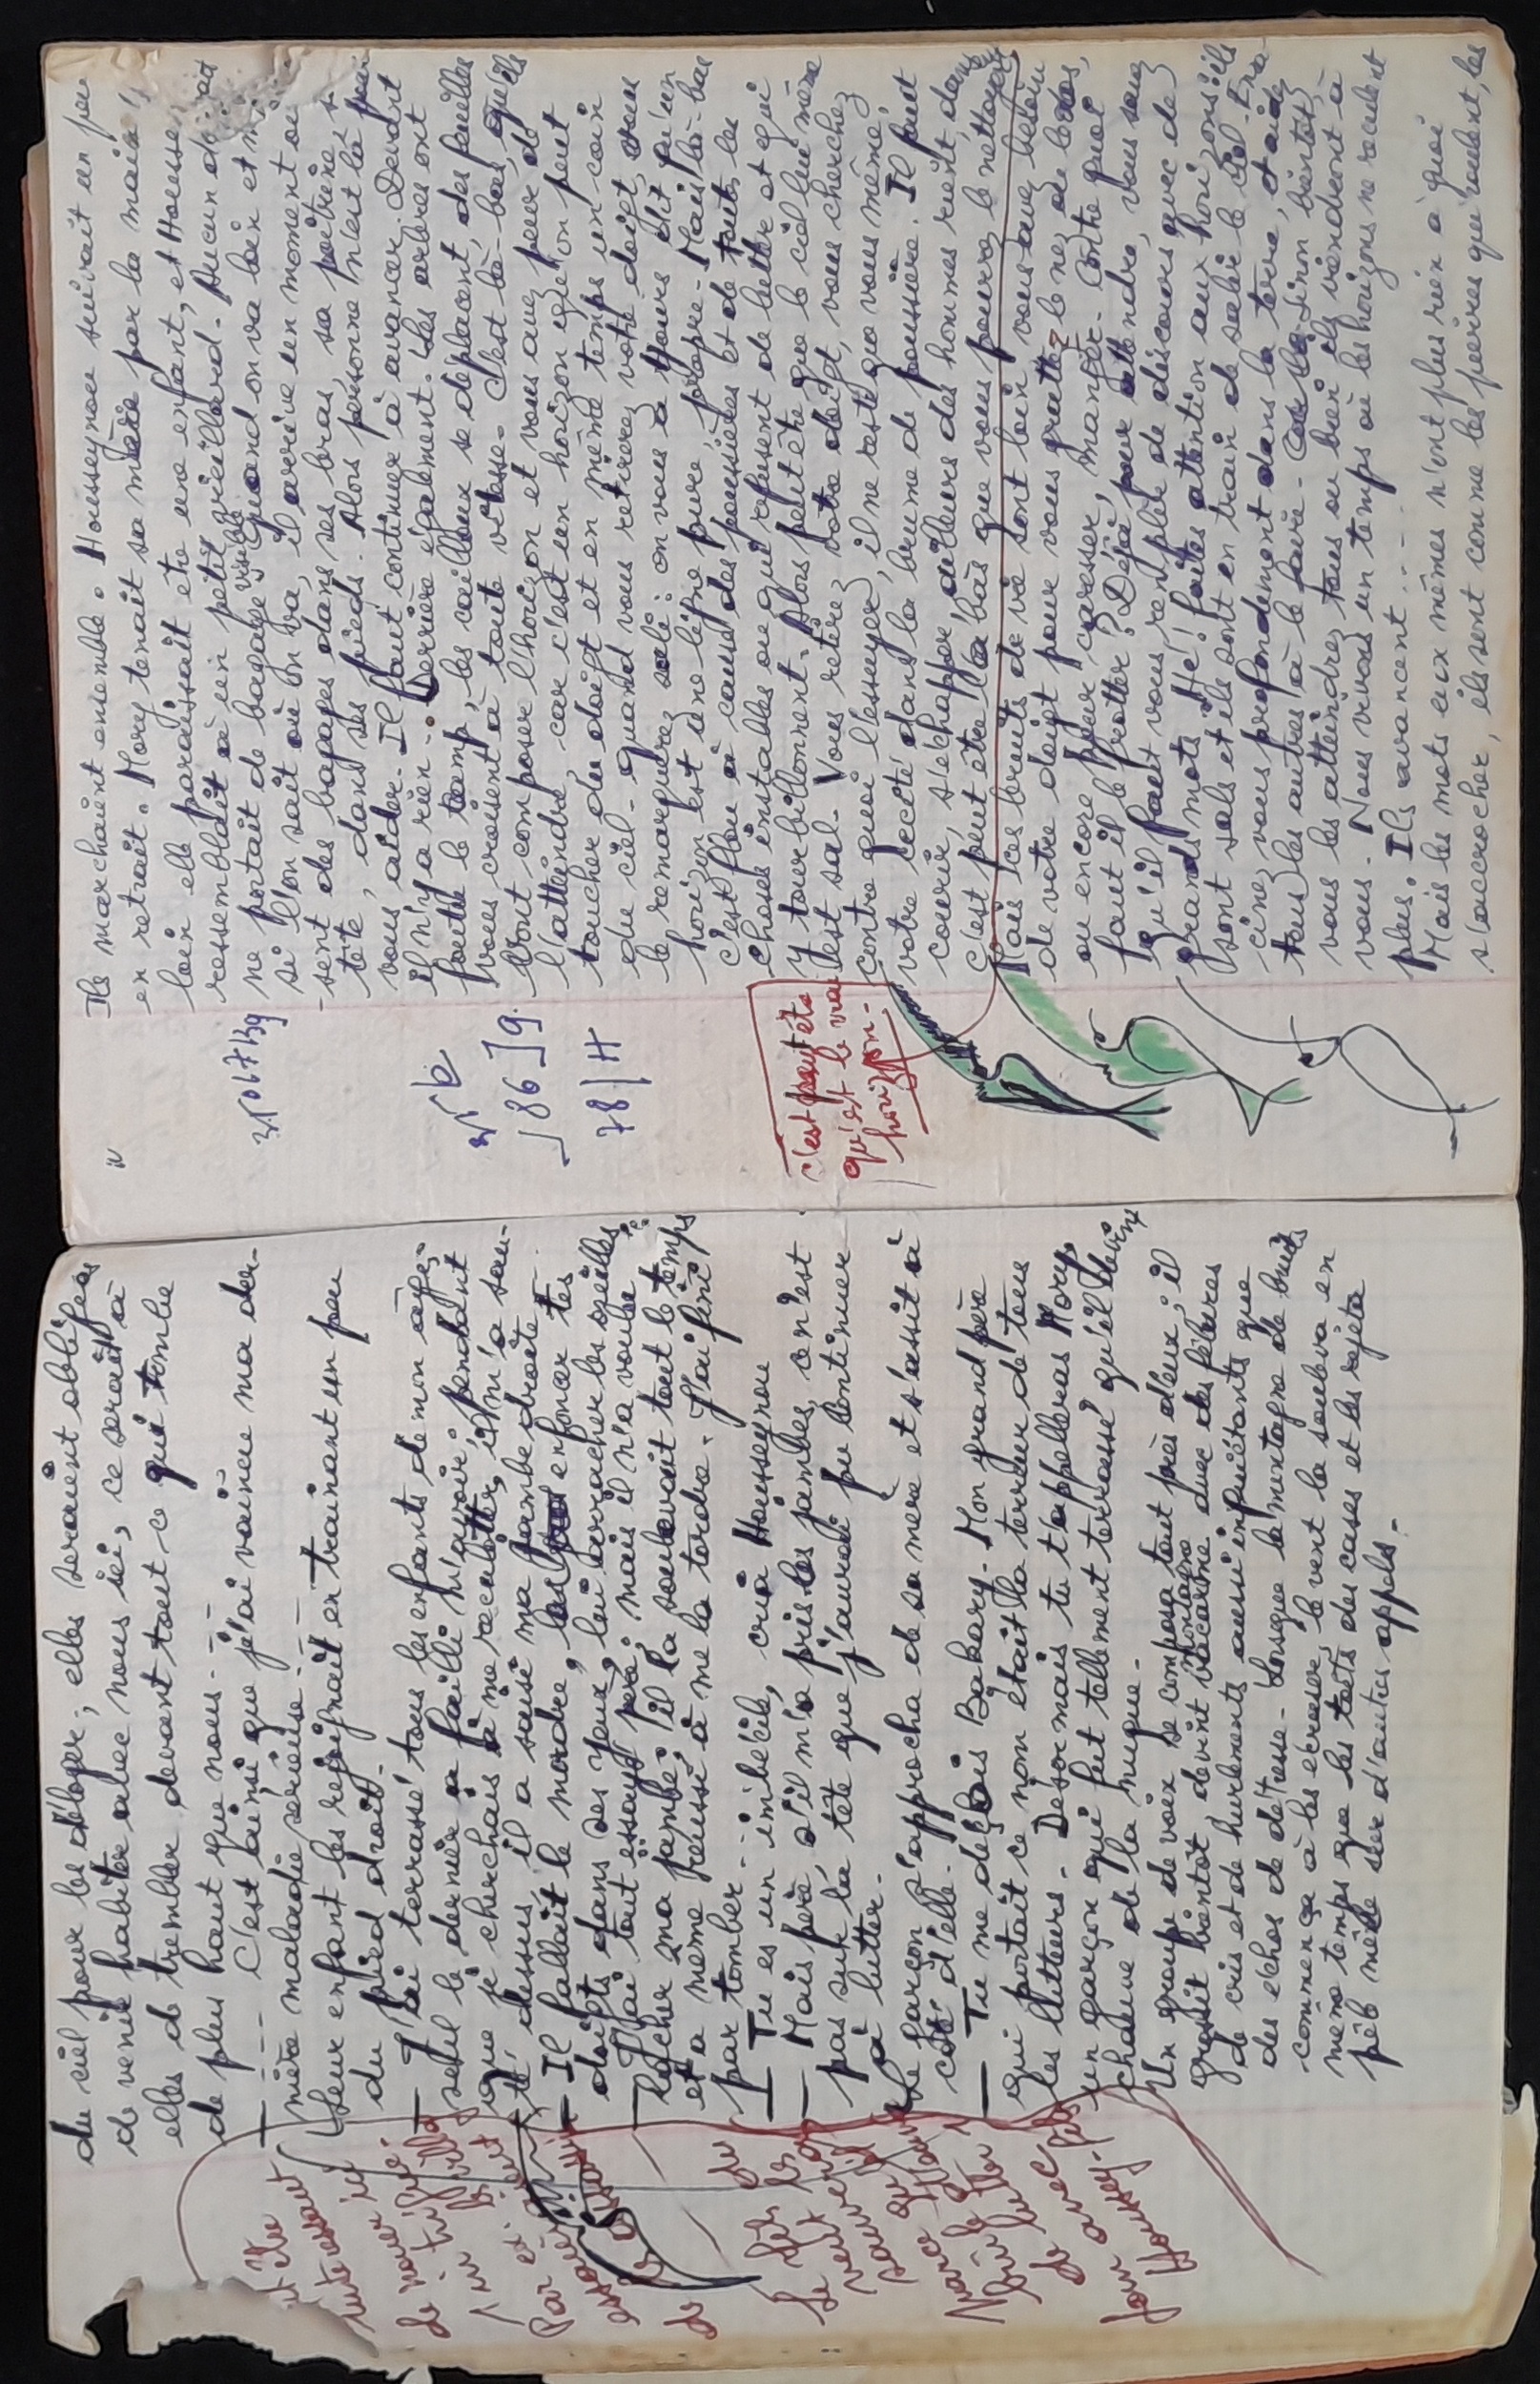 du ciel pour les déloger; elles seraient obligées
de venir habiter avec nous ici, ce serait à
elles de trembler devant tout ce qui tombe
de plus haut que nous.--
--- C'est ainsi que j'ai vaincu ma der-
nière maladie sérieuse.--
Leur enfant les rejoignait en trainant un peu
du pied droit.
— J'ai terrassé tous les enfants de mon âge;
seul le dernier a failli m'avoir: pendant
que je cherchais à me recalotter, il m'a sau-
té dessus, il a saisi ma jambe droite.
— Il fallait le mordre, enfoncer tes
doigts dans ses yeux, lui arracher les oreilles
— J'ai tout essayé père, mais il n'a voulu
lacher ma jambe; il la soulevait tout le temps
et a même réussi à me la tordre. J'ai fini
par tomber.-
— Tu es un imbécile, cria Housseynou
— Mais père, s'il m'a pris les jambes, ce n'est
pas sur la tête que j'aurais pu continuer
à lutter.
Le garçon s'approcha de sa mère et s'assit à
côté d'elle.
— Tu me déçois Bakary. Mon grand père
qui portait ce nom était la terreur de tous
les lutteurs. Désormais tu t'appelleras Mory,
un garçon qui fut tellement terrassé qu'il
chauve de la nuque.
Un groupe de voix se composa tout près d'eux; il
grossit bientôt, devint vacarme montagne avec des pelures
de cris et de hurlements aussi inquiétants que
des échos de détresse. Lorsque la montagne de bruits
commença à les écraser, le vent la souleva en
même temps que les toits des cases et les rejeta
pêle mêle sur d'autres appels.
de nouer ici
Par ex.
essayer
de
Le fils de
veut
sauver
lutter
de avec
pour
Houssey-
Ils marchaient ensemble. Housseynou suivait un peu
en retrait. Mory tenait sa mère par la main;
loin elle paraissait être une enfant, et Housse
ressemblait à un petit vieillard. Aucun
ne portait de bagage visible. Quand on va loin et
si l'on sait où on va, il arrive un moment où
sent des bagages dans ses bras, sa poitrine, s
tête, dans ses pieds. Alors personne n'est là pour
vous aider. Il faut continuer à avancer. Devant
il n'y a rien.. Derrière également. Les arbres ont
foutu le camp, les cailloux se déplacent, des feuilles
vous croisent à toute vitesse. C'est là-bas, qu'ils
vont composer l'horizon et vous avez peur de
l'atteindre, car c'est un horizon que l'on peut
toucher du doigt et en même temps un coin
du ciel. quand vous retirez votre doigt, vous
le remarquez sali: on vous a toujours dit qu'un
horizon est une ligne pure, propre. Mais là-bas
c'est flou à cause des poussières et de toutes les
choses instables ou qui refusent de lutter et qui
y tourbillonnent. Alors peut être que le ciel lui même
est sal. Vous retirez votre doigt, vous cherchez
contre quoi l'essuyer, il ne reste que vous même,
votre cécité dans la brume de poussière. Il faut
courir, s'échapper, ailleurs des hommes rient, dansent
c'est peut être là bas que vous pourrez le nettoyer
Mais les bruits de vie sont loin, vous avez besoin
de votre doigt pour vous grattez le nez, le dos,
ou encore pour caresser, manger. Contre quoi
faut il le frotter? Déjà, pour attendre, vous savez
qu'il faut vous remplir de discours avec de
grands mots. Hé! faites attention aux horizons: ils
sont sals et ils sont en train de salir le ciel. Enra-
cinez vous profondément dans la terre, et aidez
tous les autres à le faire. Sinon, bientôt,
vous les atteindrez tous ou bien ils viendront à
vous. Nous vivons un temps où les horizons ne reculent
plus. Ils avancent...
Mais les mots eux mêmes n'ont plus rien à quoi
s'accrocher, ils sont comme les pierres qui roulent, les
c'est peut être
qu'est le vrai
horizon-